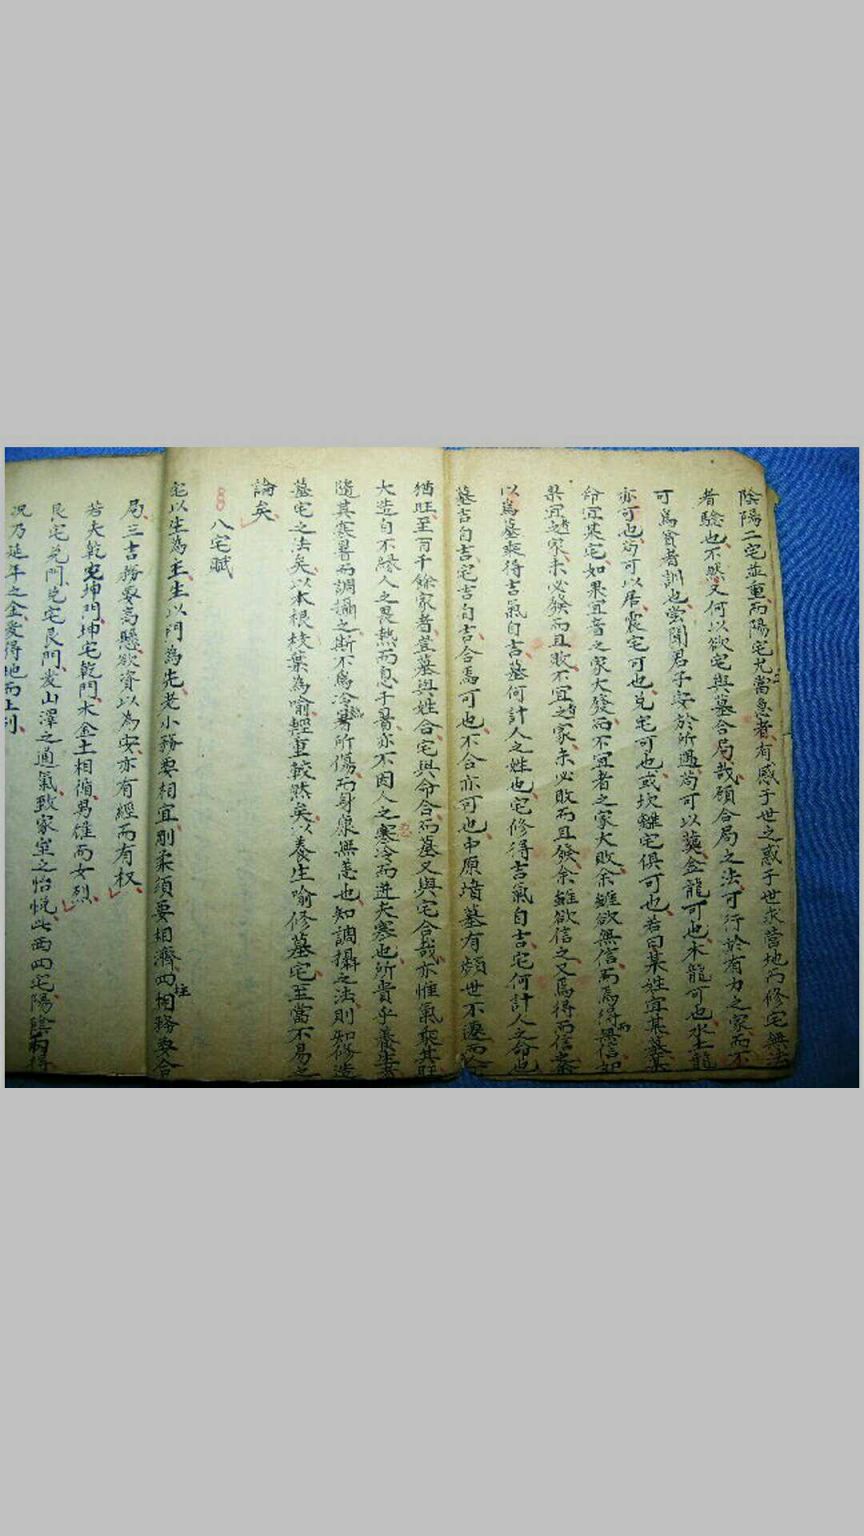 陰陽二宅並重而陽宅尤當急者有感于世之惑于世求营地而修宅無法
者驗也不然又何以欲宅與墓合局哉頋合局之法可行於有力之家而不
可為貧者訓也尝聞君子安於所遇苟可以葬金龍可也木龍可也水土龍
亦可也苟可以居震宅可也兑宅可也或坎離宅俱可也若曰某姓宜某墓某
命宜某宅如果宜音之家大發而不宜者之家大敗余雖欲無信而焉得無信如
果宜之家未必發而且敗不宜之家未必敗而且發余雖欲信之又焉得而信之
以為墓乘得吉氣自吉墓何計人之姓也宅修得吉氣自吉宅何計人之命也
墓吉自吉宅吉自吉合焉可也不合亦可也中原墳墓有頗世不遷而
猶旺至百千餘家者豈墓與姓合宅與命合而墓又與宅合哉亦惟氣聚其旺
大造自不緣人之畏熱而息于暑亦不因人之寒冷而进夫寒也所貴乎養生者
隨其寒暑而調攝之斯不為冷暑所傷而身康無恙也知調攝之法則知修造
墓宅之法矣以本根枝葉為喻輕重較然矣以養生喻修墓宅至當不易之
論矣
八宅賦
宅以生為主生以門為先老小務要相宜剛柔須要相濟四柱相務要合
局三吉務要高懸欲資以為安亦有經而有权
若夫乾宅坤門坤宅乾門木金土相循男雄而女烈
艮宅兑門兑宅艮門发山澤之通氣致家室之怡悦此西四宅陽陰兩得
况乃延年之金爱得地而上利